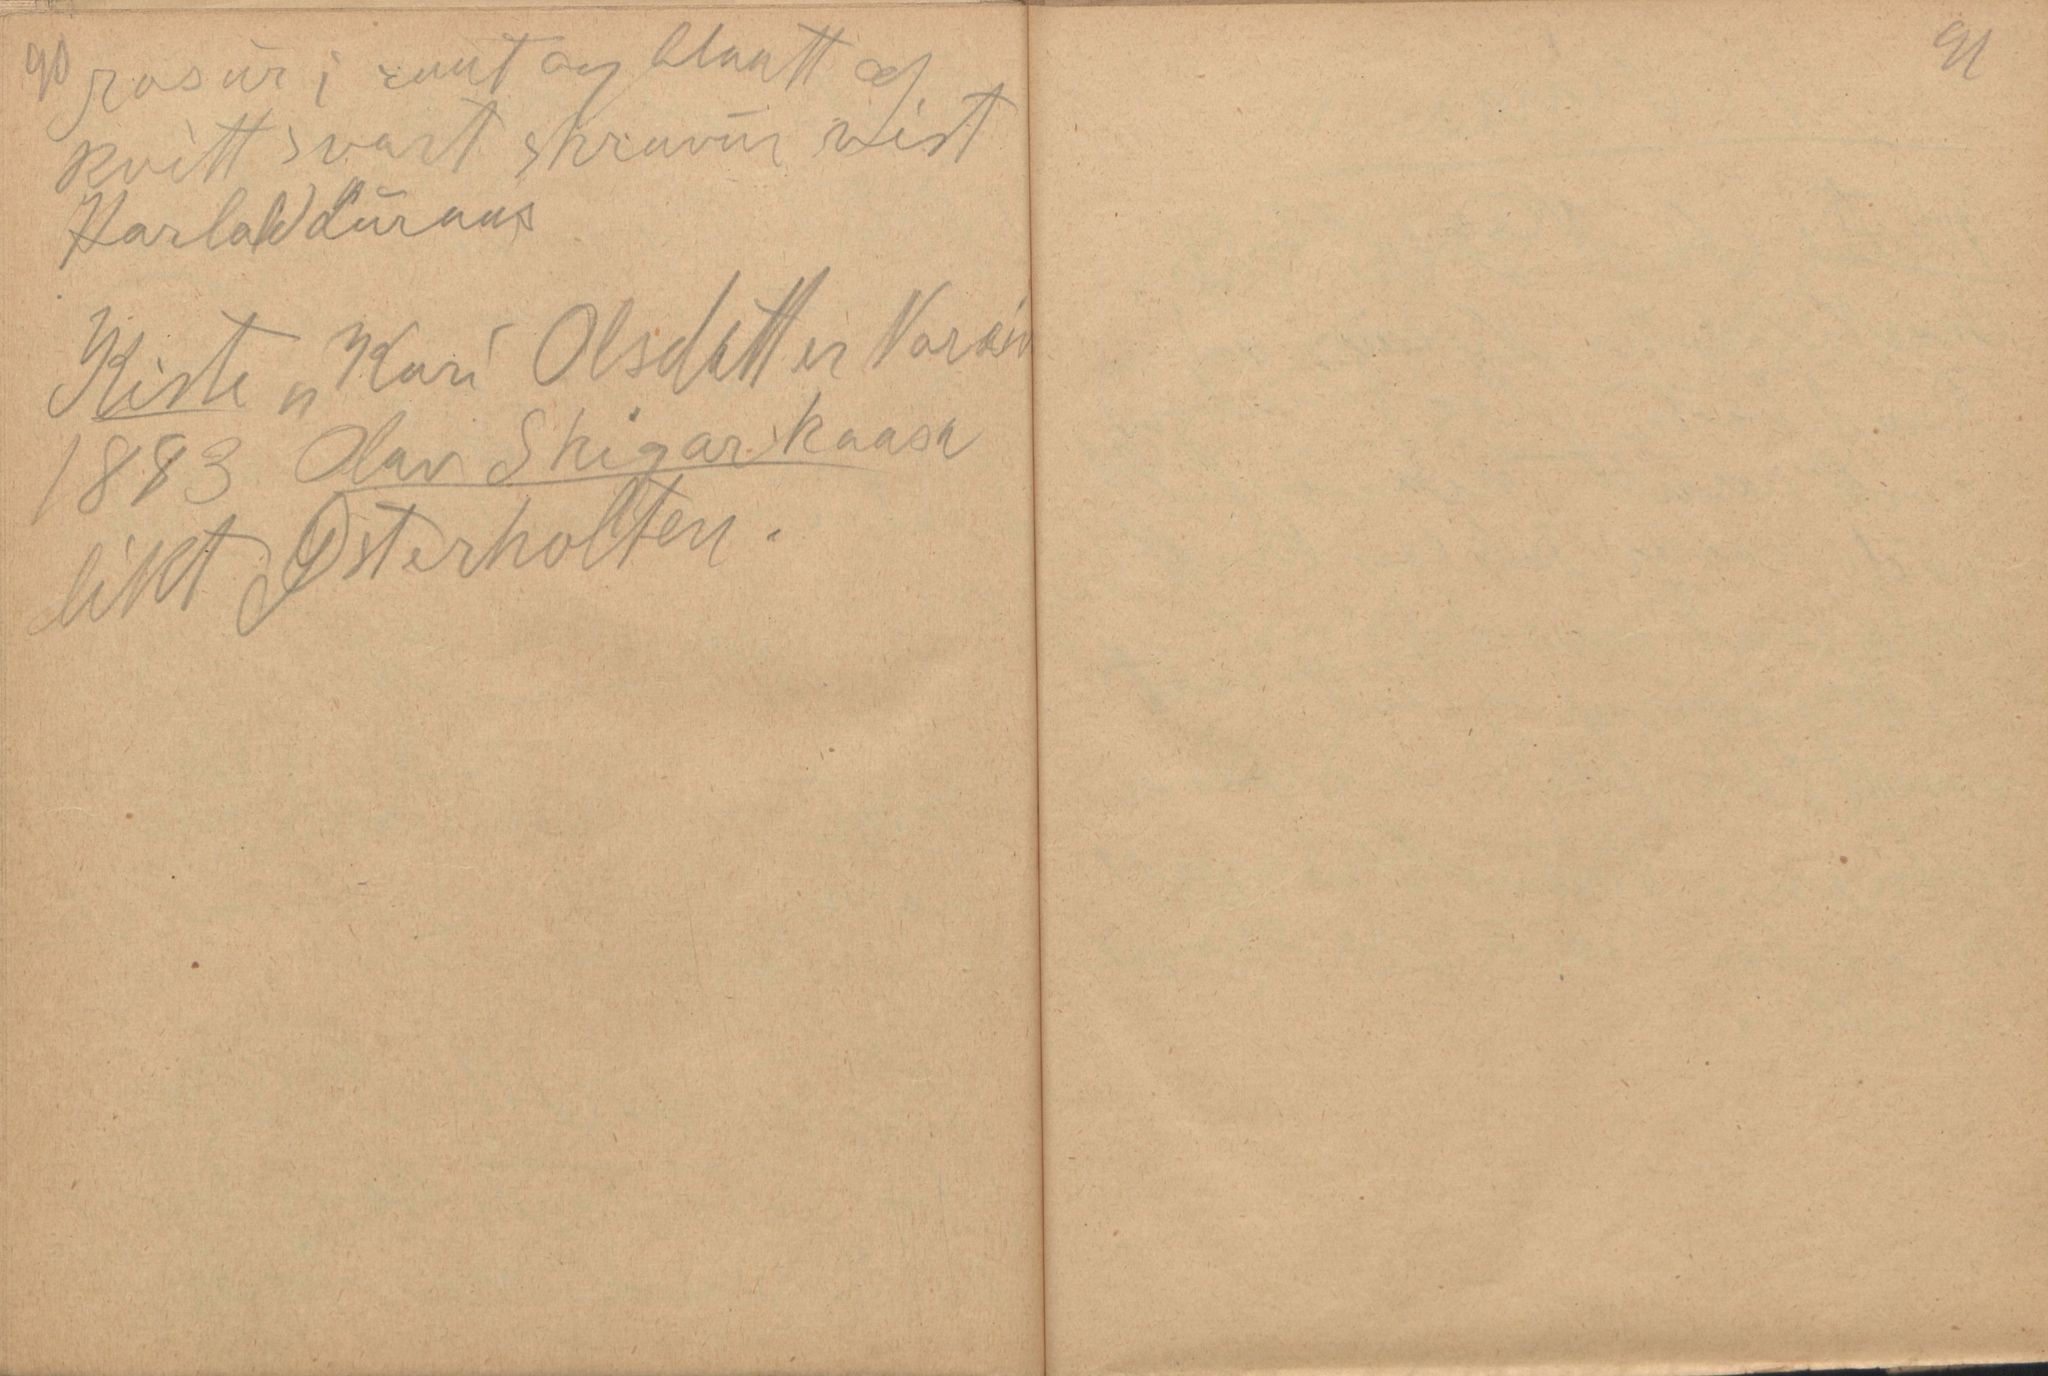 90
rosur i raut og blaatt og
kvitt svart skravur vist
Harlald Luraas
Kiste „Kari Olsdatter
1883 Olav Skigarkaasa
likt Østerholten.
91